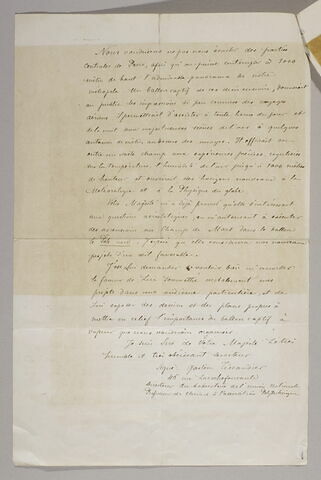 Nous voudrions ne pas nous écarter des parties
centrales de Paris, afin qu'on puisse contempler à 1000
mètres de haut l'admirable panorama de notre
métropole. Un ballon captif de ces dimensions, donnant
au public les impressions si peu connues des voyages
aériens, permettrait d'assister à toute heure du jour et
de la nuit aux majestueuses scènes de l'air à quelques
au dessus des nuages. Il offrirait en
outre un vaste champ aux expériences précises, régulières
sur la température, l'humidité de l'air jusqu'à 1000 mètres
de hauteur et ouvrirait des horizons nouveaux à la
Météorologie et à la Physique du globe.
Votre Majesté m'a déjà prouvé qu'elle s'intéressait
aux questions aérostatiques, en m'autorisant à exécuter
des ascensions au Champ de Mars dans le ballon
le Pôle nord. J'espère qu'elle considèrera nos nouveaux
projets d'un œil favorable.
J'ose lui demander de vouloir bien m'accorder
la faveur de Lui soumettre verbalement nos
projets dans une audience particulière, et de
Lui exposer des devis et des plans propres à
mettre en relief l'importance du ballon captif à
vapeur que nous voudrions organiser.
Je suis Sire de Votre Majesté Le très
humble et très obéissant serviteur
Signé Gaston Tissandier
46 rue Larochefoucauld
Directeur du laboratoire de l'union nationale
Professeur de chimie à l'association Polytechnique